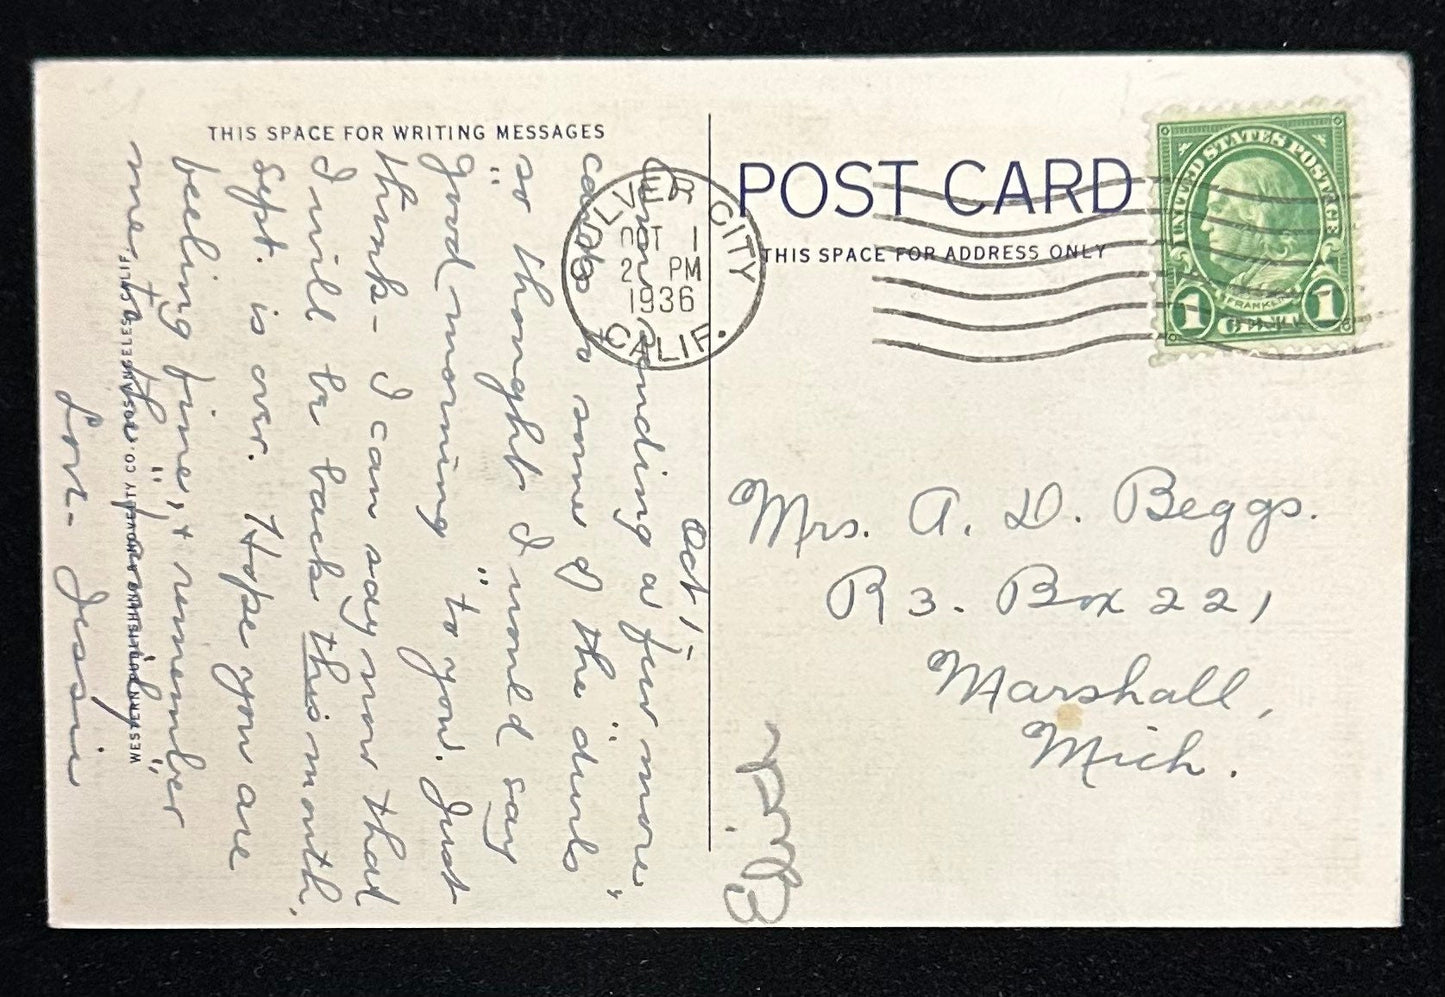 THIS SPACE FOR WRITING MESSAGES
Oct, 1,-
Am sending a few more
cards to some of the "durls"
so thought I would say
"good morning" to you. Just
think - I can say now that
I will be back this month,
Sept. is over. Hope you are
feeling fine, & remember
me, to the "
Love - Jessie
WESTERN PUBLISHING & NOVELTY CO., LOS ANGELES, CALIF.
CULVER CITY
OCT 1
2 PM
1936
CALIF.
POST CARD
THIS SPACE FOR ADDRESS ONLY
UNITED STATES POSTAGE
FRANKLIN
1 CENT 1
Mrs. A. D. Beggs.
R 3. Box 221
Marshall,
Mich.